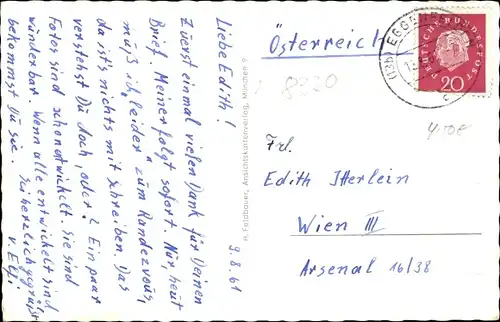 9.8.61
Liebe Edith!
Zuerst einmal vielen Dank für Deinen
Brief. Meiner folgt sofort. Nur, heut
muß ich leider "zum Randezvous",
da ist's nichts mit schreiben. Das
verstehst Du doch, oder? Ein paar
Fotos sind schon entwickelt. Sie sind
wunderbar. Wenn alle entwickelt sind
bekommst Du sie. Sei herzlich gegrüßt
v.
H. Feldbauer, Ansichtskartenverlag, München 9
Österreich
(13b)
DEUTSCHE BUNDESPOST
20
c
8320
4,00€
Frl.
Edith Itterlein
Wien III
Arsenal 16/38